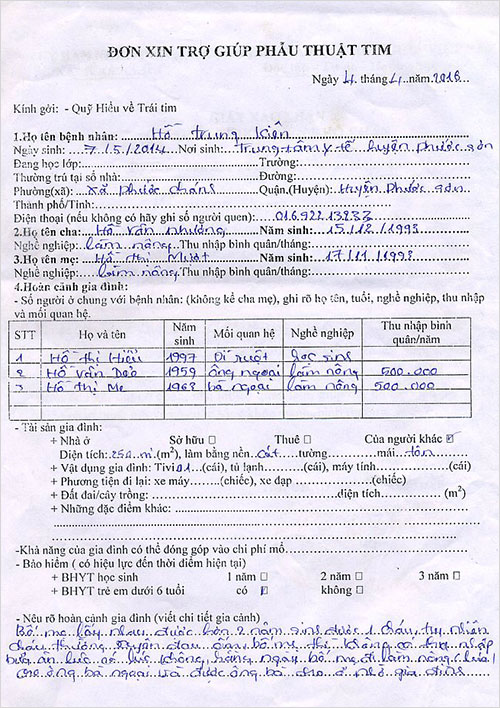 ĐƠN XIN TRỢ GIÚP PHẪU THUẬT TIM
Ngày 4 tháng 4 năm 2016
Kính gởi: - Quỹ Hiểu về Trái tim
1.Họ tên bệnh nhân: Hồ Trung Kiên
Ngày sinh: 7/5/2014 Nơi sinh: Trung tâm y tế huyện phước sơn
Đang học lớp: Trường:
Thường trú tại số nhà: Đường:
Phường(xã): xã phước chánh Quận,(Huyện): Huyện Phước sơn
Thành phố/Tỉnh:
Điện thoại (nếu không có hãy ghi số người quen):
2.Họ tên cha: Hồ văn nhương Năm sinh: 15/12/1993
Nghề nghiệp: làm nông Thu nhập bình quân/tháng:
3.Họ tên mẹ: Hồ thị Mượt Năm sinh: 17/11/1993
Nghề nghiệp: làm nông Thu nhập bình quân/tháng:
4.Hoàn cảnh gia đình:
- Số người ở chung với bệnh nhân: (không kể cha mẹ), ghi rõ họ tên, tuổi, nghề nghiệp, thu nhập
và mối quan hệ.
STT Họ và tên Năm sinh Mối quan hệ Nghề nghiệp Thu nhập bình quân/năm
1 Hồ thị Hiệu 1997 Dì ruột học sinh
2 Hồ văn 1959 ông ngoại làm nông 500.000
3 Hồ thị 1963 bà ngoại làm nông 500.000
- Tài sản gia đình:
+ Nhà ở Sở hữu ☐ Thuê ☐ Của người khác ☑
Diện tích: 250 m (m²), làm bằng nền cát tường mái tôn
+ Vật dụng gia đình: Tivi 01 (cái), tủ lạnh (cái), máy tính (cái)
+ Phương tiện đi lại: xe máy (chiếc), xe đạp (chiếc)
+ Đất đai/cây trồng: diện tích (m²)
+ Những đặc điểm khác:
-Khả năng của gia đình có thể đóng góp vào chi phí mổ
- Bảo hiểm ( có hiệu lực đến thời điểm hiện tại)
+ BHYT học sinh 1 năm ☐ 2 năm ☐ 3 năm ☐
+ BHYT trẻ em dưới 6 tuổi có ☑ không ☐
- Nêu rõ hoàn cảnh gia đình (viết chi tiết gia cảnh)
Bố mẹ lấy nhau được hơn 2 năm sinh được 1 cháu, tuy nhiên
cháu thường xuyên đau ốm, bố mẹ thì không có thu nhập
bữa ăn lúc có lúc không, hàng ngày bố mẹ đi làm nông (lúa)
cho ông bà ngoại và được ông bà cho ở nhờ gia đình